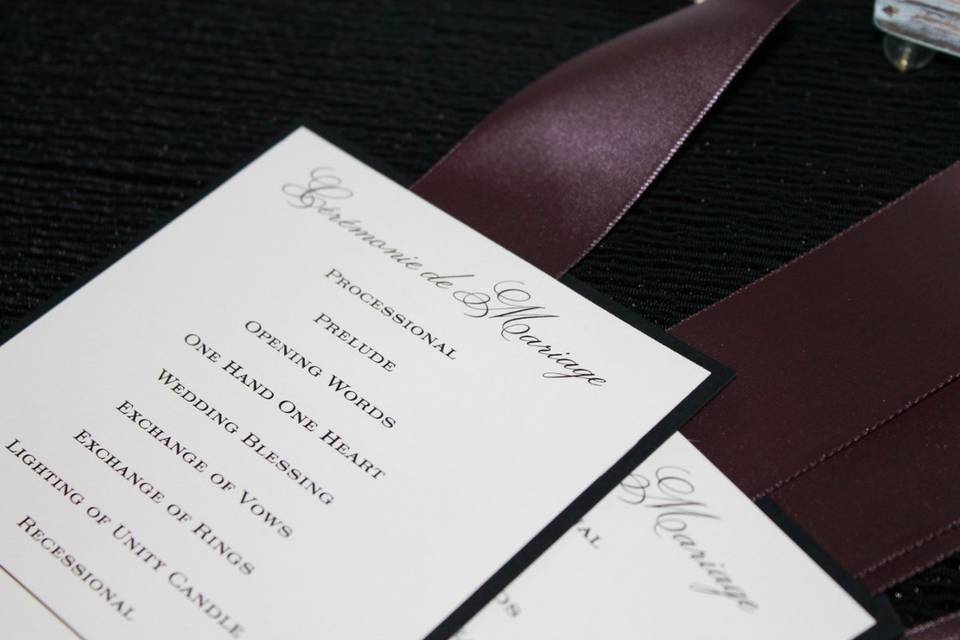 Cérémonie de Mariage
Processional
Prelude
Opening Words
One Hand One Heart
Wedding Blessing
Exchange of Vows
Exchange of Rings
Lighting of Unity Candle
Recessional
Mariage